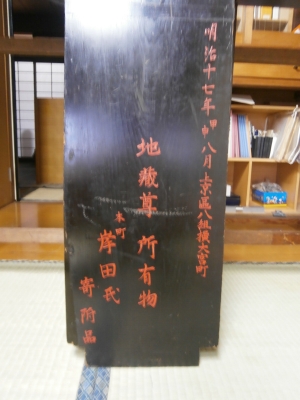 明治十七年甲申八月上京區八組橫大宮町
地藏尊所有物
本町
岸田氏
寄附品